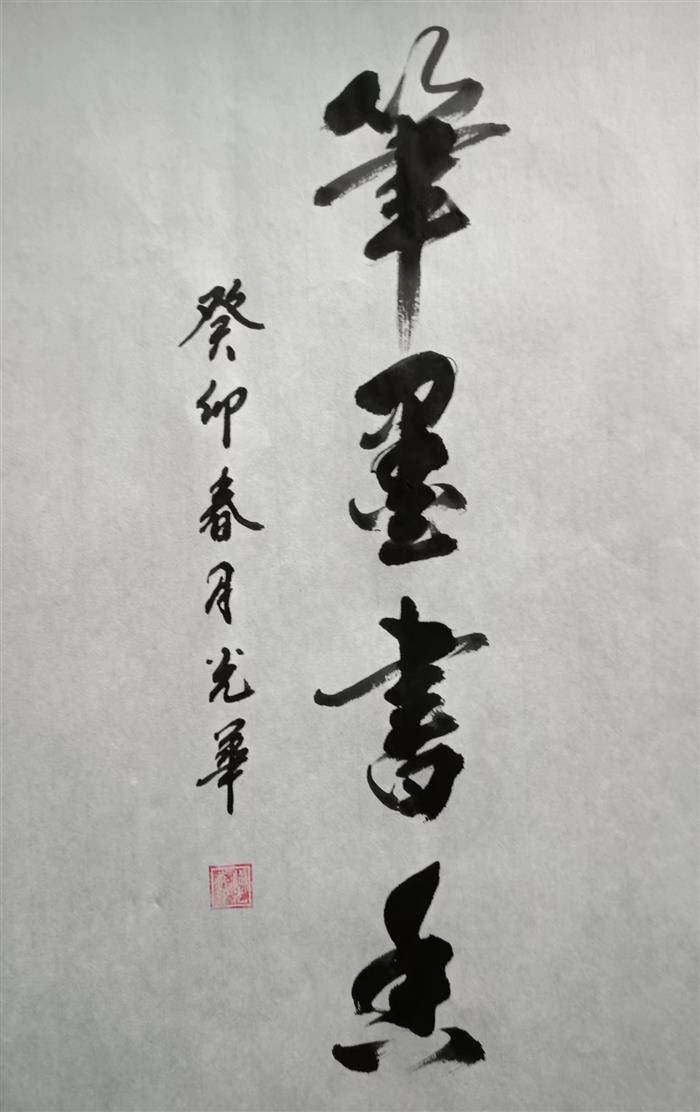 筆墨書香
癸卯春月光華